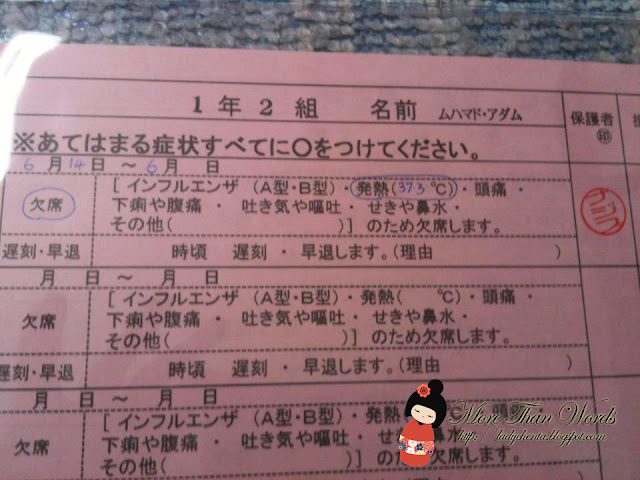 1年2組 名前 ムハマド・アダム 保護者 印
※あてはまる症状すべてに○をつけてください。
6月14日 ～ 6月 日
欠席 [ インフルエンザ (A型・B型)・発熱(37.3 ℃)・頭痛・
下痢や腹痛 ・ 吐き気や嘔吐 ・ せきや鼻水・
その他( )] のため欠席します。
遅刻・早退 時頃 遅刻 ・ 早退します。(理由 )
月 日 ～ 月 日
欠席 [ インフルエンザ (A型・B型)・発熱( ℃)・頭痛・
下痢や腹痛 ・ 吐き気や嘔吐 ・ せきや鼻水・
その他( )] のため欠席します。
遅刻・早退 時頃 遅刻 ・ 早退します。(理由 )
月 日 ～ 月 日
欠席 [ インフルエンザ (A型・B型)・発熱 頭痛
下痢や腹痛 ・ 吐き気や嘔吐 ・ せきや
その他( )] のため欠席します。
More Than Words